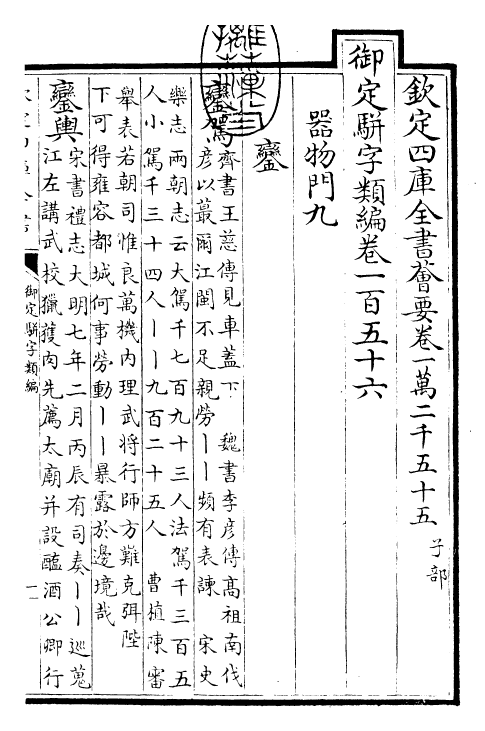 欽定四庫全書薈要卷一萬二千五十五 子部
御定駢字類編卷一百五十六
器物門九
鑾
鑾駕 齊書王慈傳見車蓋下　魏書李彦傳髙祖南伐
彦以蕞爾江閩不足親勞丨丨頻有表諫　宋史
樂志兩朝志云大駕千七百九十三人法駕千三百五
人小駕千三十四人丨丨九百二十五人　曹植陳審
舉表若朝司惟良萬機内理武将行師方難克弭陛
下可得雍容都城何事勞動丨丨暴露於邊境哉
鑾輿 宋書禮志大明七年二月丙辰有司奏丨丨巡蒐
江左講武校獵獲肉先薦太廟并設醢酒公卿行
御定駢字類編
一